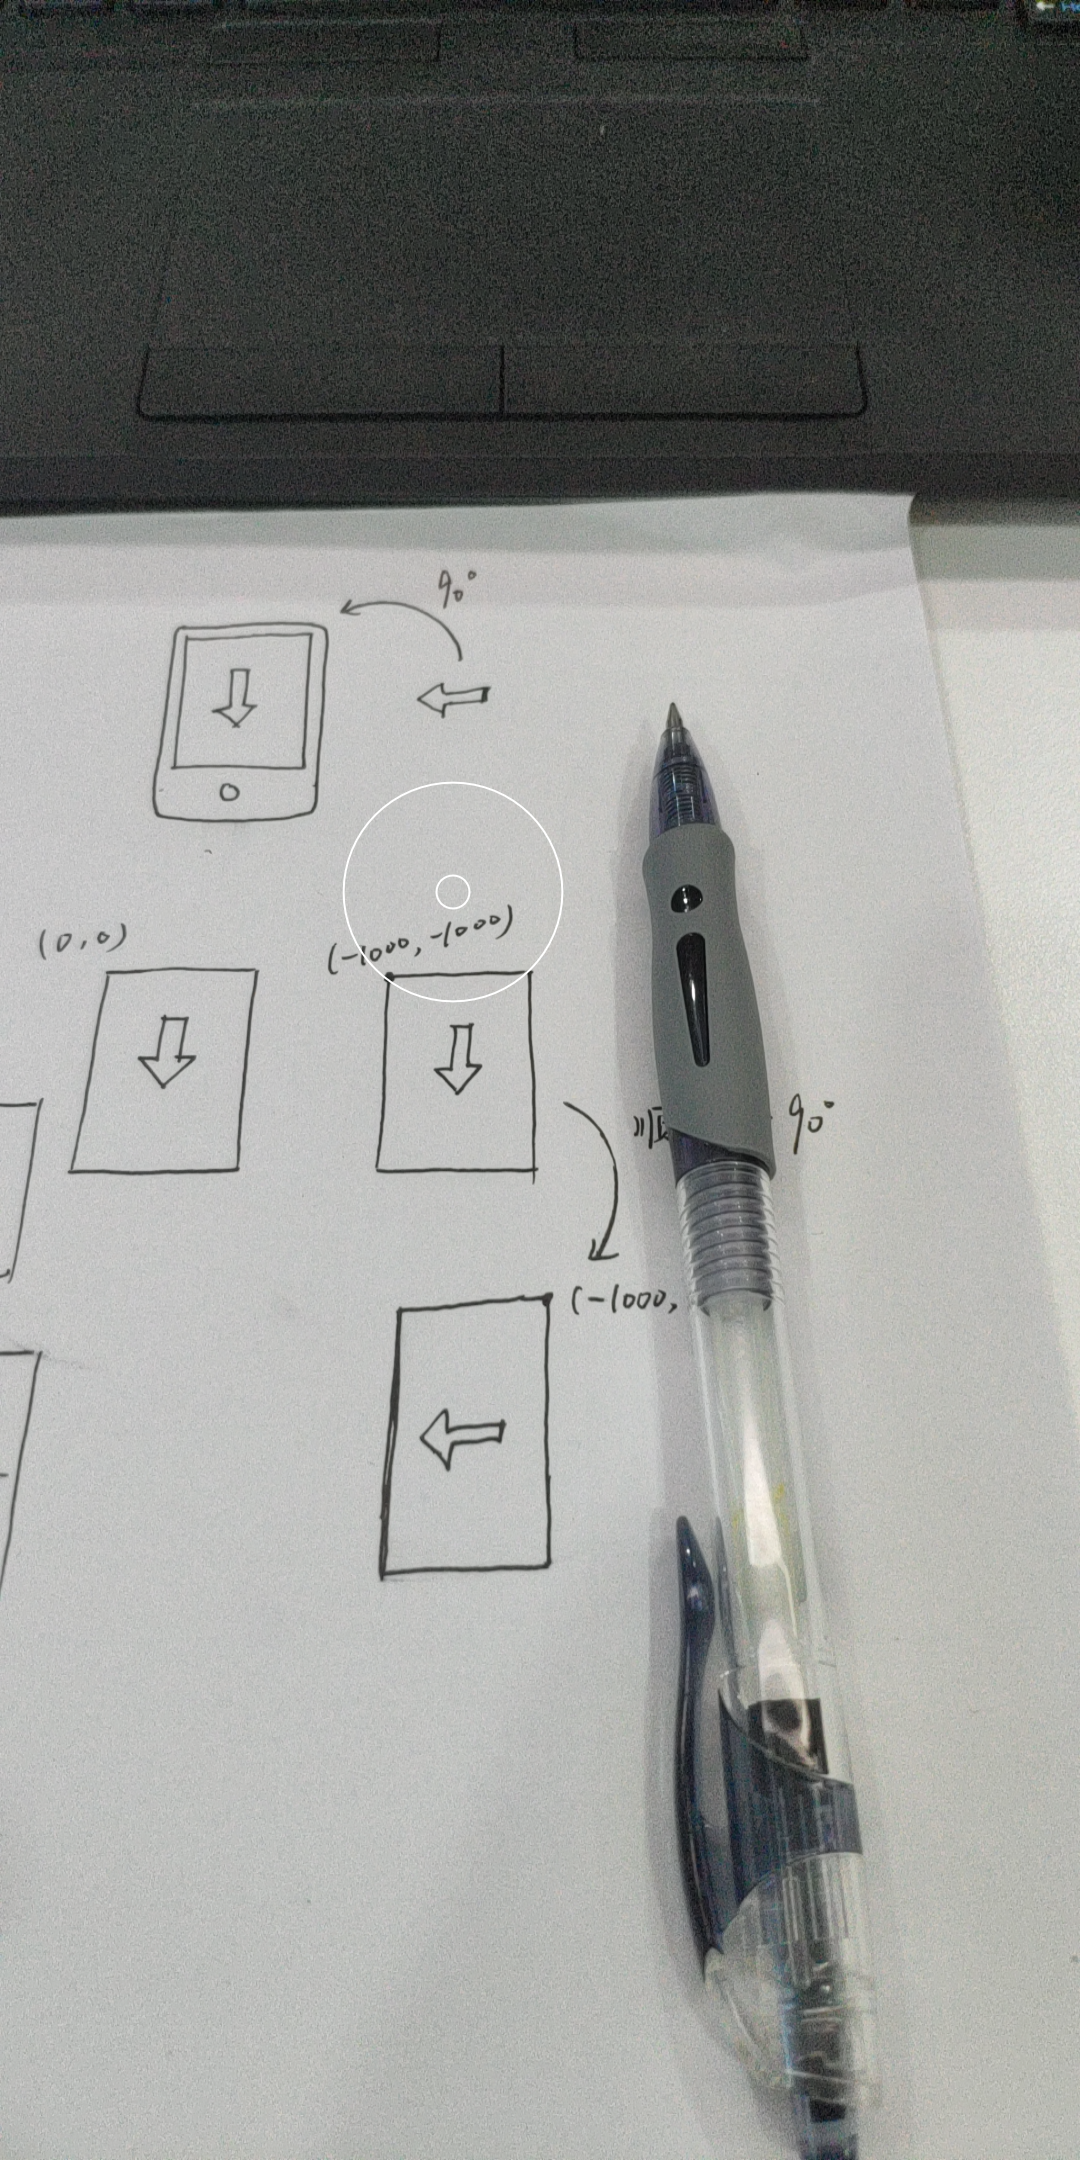 90°
(0,0)
(-1000,-1000)
90°
(-1000,